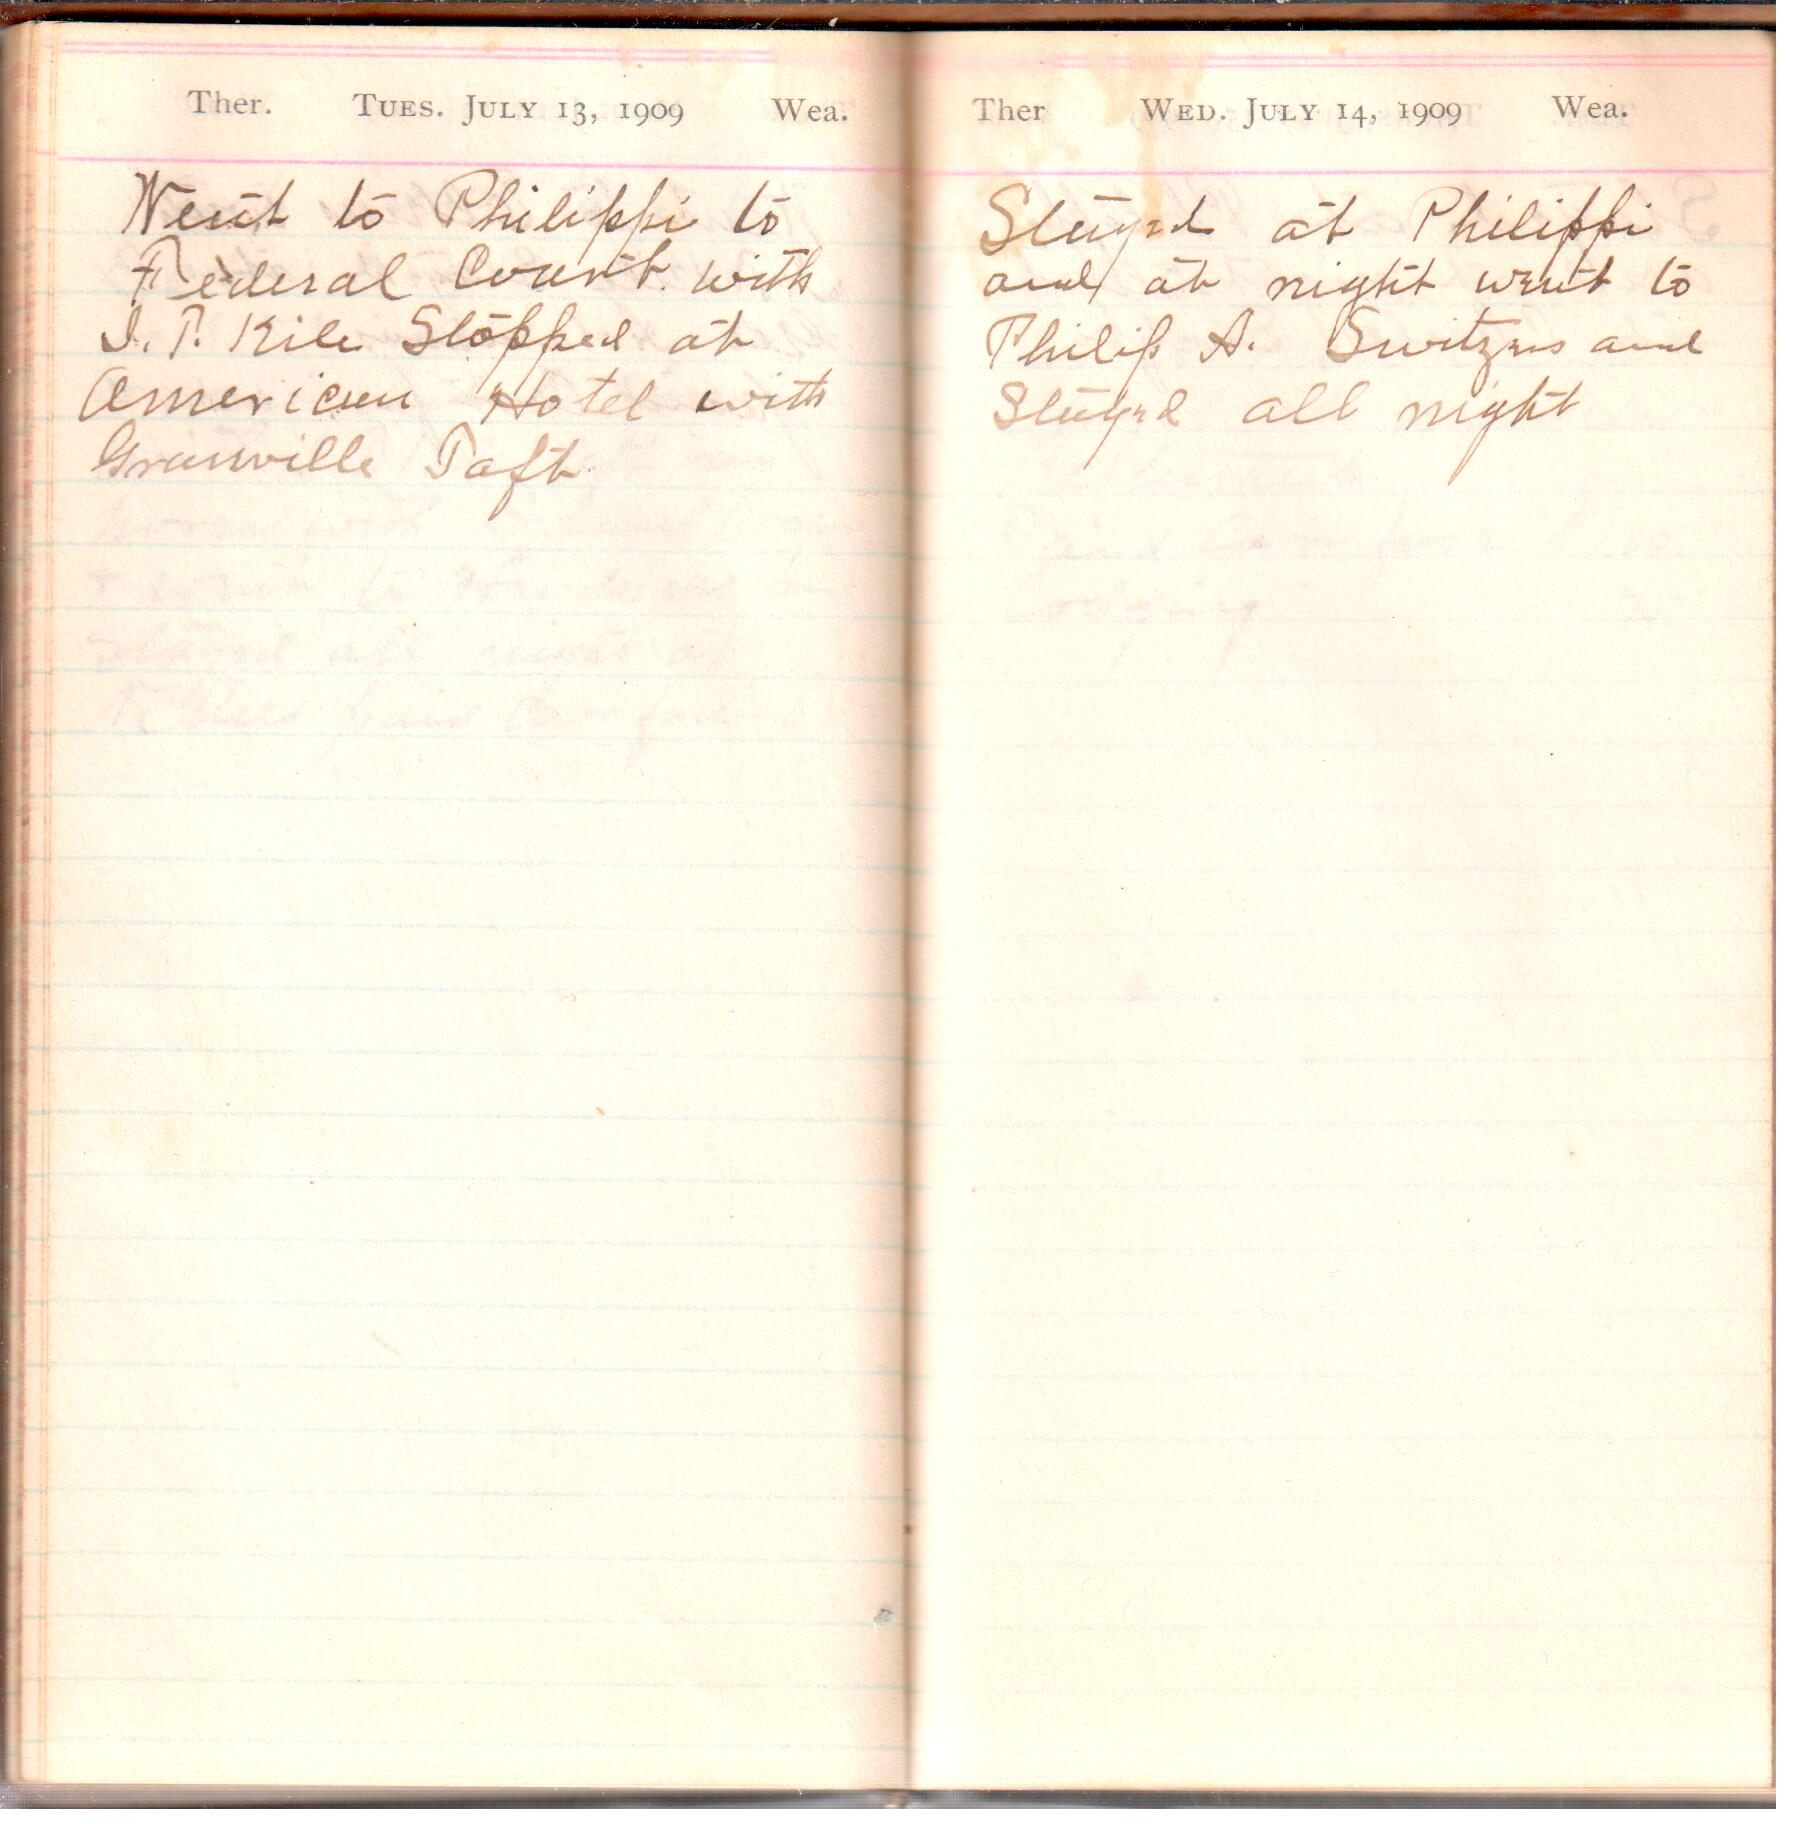 Ther. TUES. JULY 13, 1909 Wea.
Went to Philippi to
Federal Court. with
I. T. Kile Stopped at
American Hotel with
Granville Taft.
Ther WED. JULY 14, 1909 Wea.
Stayed at Philippi
and at night went to
Philip A. Switzers and
Stayed all night